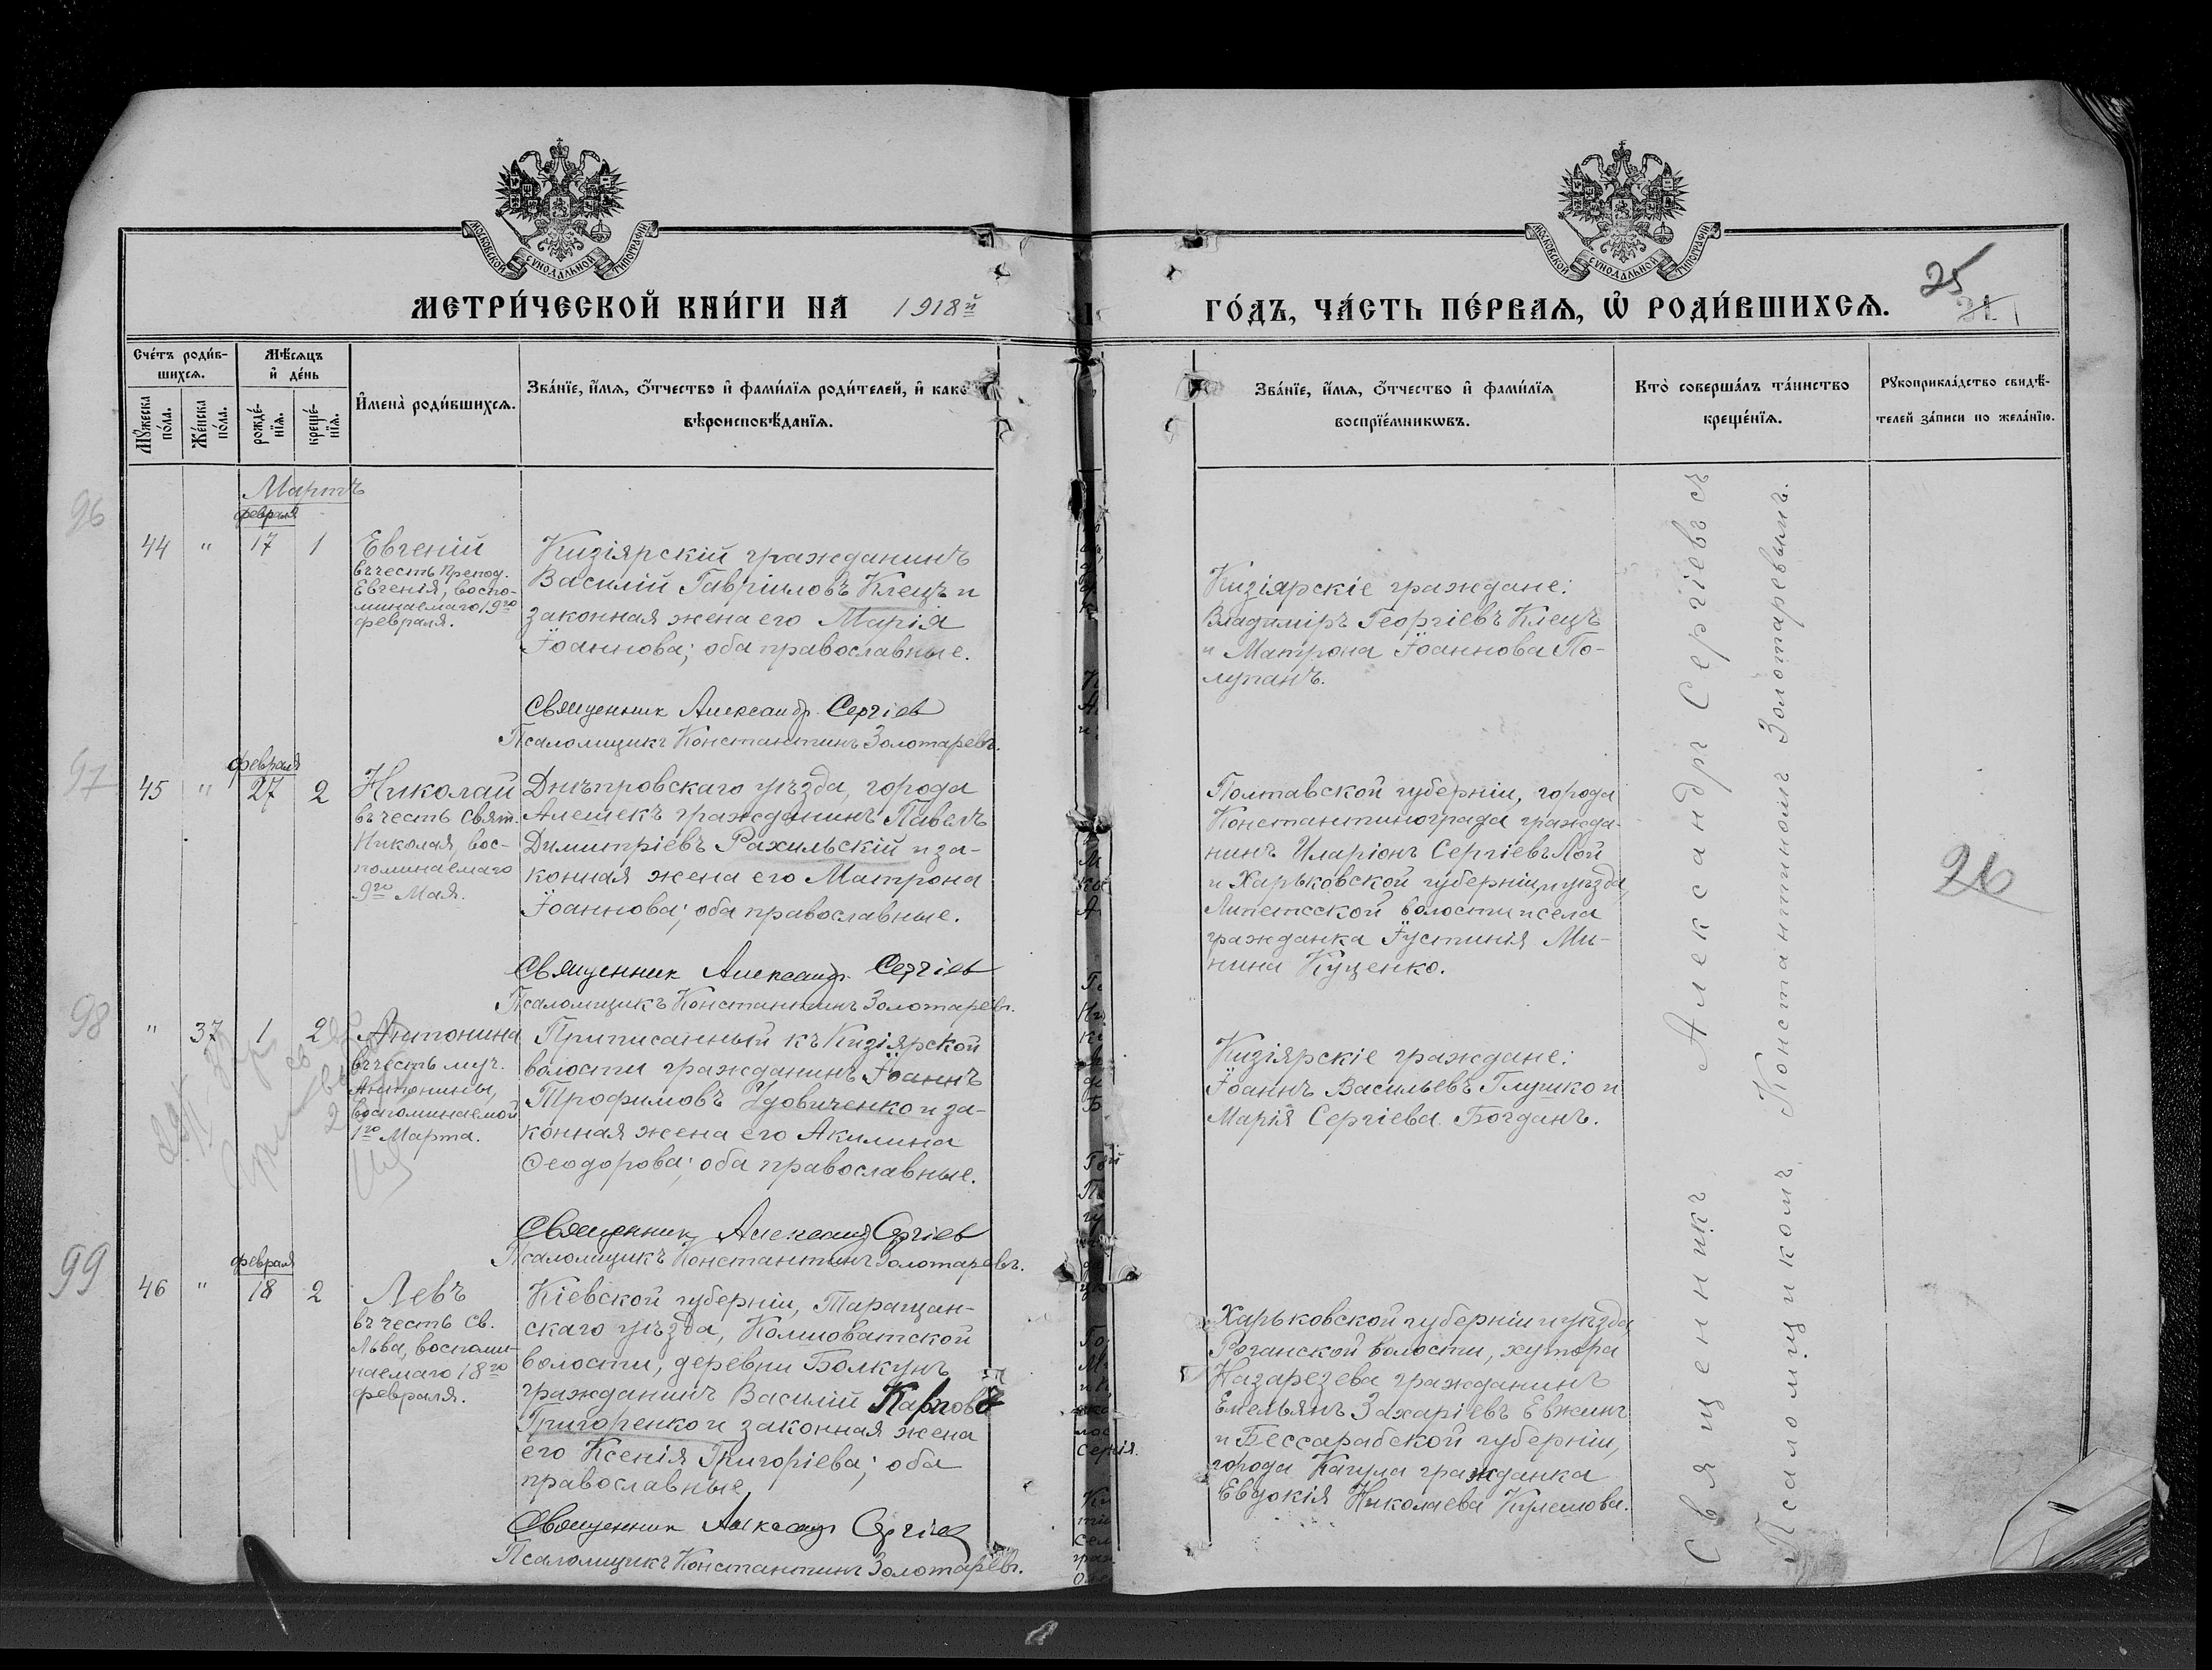 МОСКОВСКОЙ СѴНОДАЛЬНОЙ ТИПОГРАФІИ
МОСКОВСКОЙ СѴНОДАЛЬНОЙ ТИПОГРАФІИ
МЕТРИ́ЧЕСКОЙ КНИ́ГИ НА 1918й
ГО́ДЪ, ЧА́СТЬ ПЕ́РВАЯ, Ѡ҆ РОДИ́ВШИХСѦ.
25
21
Сче́тъ роди́в-
шихсѧ.
Мѣ́сѧцъ
и҆ де́нь
Мꙋ́жеска
по́ла.
Же́нска
по́ла.
рожде́-
нїѧ.
креще́-
нїѧ.
И҆мена̀ роди́вшихсѧ.
Зва́нїе, и҆́мѧ, ѻ҆́тчество и҆ фами́лїѧ роди́телей, и҆ како́
вѣроисповѣ́данїѧ.
Зва́нїе, и҆́мѧ, ѻ҆́тчество и҆ фами́лїѧ
воспрїе́мникѡвъ.
Кто̀ соверша́лъ та́инство
креще́нїѧ.
Рꙋкоприкла́дство свидѣ́-
телей за́писи по жела́нїю.
Мартъ
96
февраля
44 " 17 1
Евгеній
въ честь препод.
Евгенія, воспо-
минаемаго 19го
февраля.
Кизіярскій гражданинъ
Василій Гавріиловъ Клецъ и
законная жена его Марія
Іоаннова; оба православные.
Священник Александр Сергіев
Псаломщикъ Константинъ Золотаревъ.
Кизіярскіе граждане:
Владиміръ Георгіевъ Клецъ
и Матрона Іоаннова По-
лупанъ.
97
февраля
45 " 27 2
Николай
въ честь свят.
Николая, вос-
поминаемаго
9го Мая.
Днѣпровскаго уѣзда, города
Алешекъ гражданинъ Павелъ
Димитріевъ Рахильскій и за-
конная жена его Матрона
Іоаннова; оба православные.
Священник Александр Сергіев
Псаломщикъ Константинъ Золотаревъ.
Полтавской губерніи, города
Константинограда гражда-
нинъ Иларіонъ Сергіевъ Лой
и Харьковской губерніи и уѣзда,
волости и села
гражданка Іустинія Ми-
нина Куценко.
26
98
" 37 1 2
Антонина
въ честь муч.
Антонины,
воспоминаемой
1го Марта.
Приписанный къ Кизіярской
волости гражданинъ Іоаннъ
Трофимовъ Удовиченко и за-
конная жена его Акилина
Ѳеодорова; оба православные.
Священник Александр Сергіев
Псаломщикъ Константинъ Золотаревъ.
Кизіярскіе граждане:
Іоаннъ Васильевъ Глушко и
Марія Сергіева Богданъ.
99
февраля
46 " 18 2
Левъ
въ честь св.
Льва, воспоми-
наемаго 18го
февраля.
Кіевской губерніи, Таращан-
скаго уѣзда,
волости, деревни Болкунъ
гражданинъ Василій Карповъ
Григоренко и законная жена
его Ксенія Григоріева; оба
православные.
Священник Александр Сергіев
Псаломщикъ Константинъ Золотаревъ.
Харьковской губерніи и уѣзда,
Роганской волости, хутора
Назарезева гражданинъ
Емельянъ Захаріевъ Евжинъ
и Бессарабской губерніи,
города Кагула гражданка
Евдокія Николаева Кулешова.
Священникъ Александръ Сергіевъ съ
Псаломщикомъ Константиномъ Золотаревымъ.